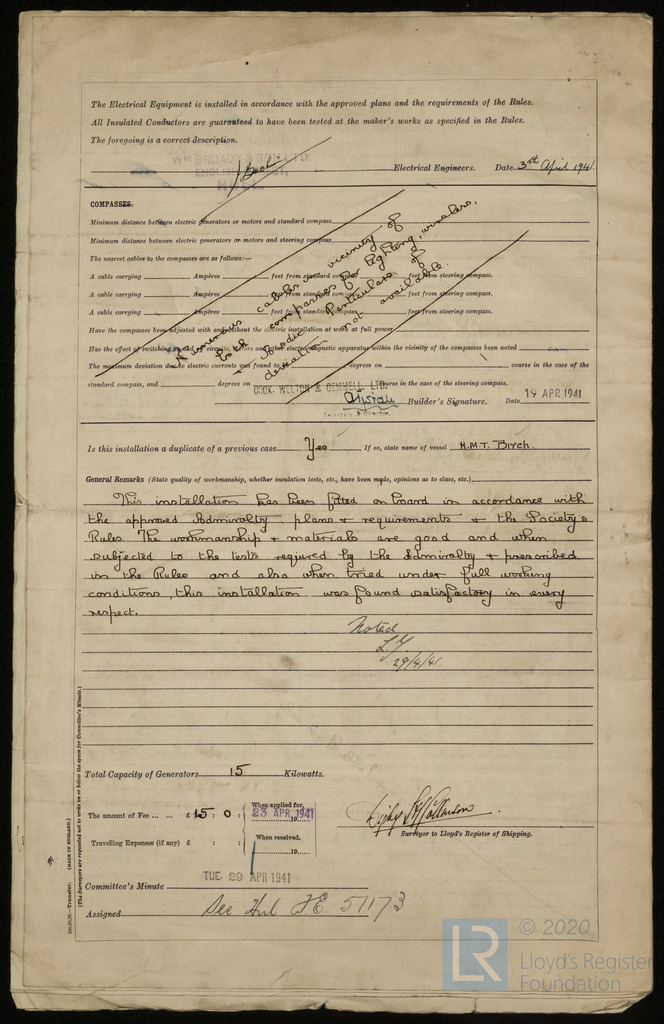 The Electrical Equipment is installed in accordance with the approved plans and the requirements of the Rules.
All Insulated Conductors are guaranteed to have been tested at the maker's works as specified in the Rules.
The foregoing is a correct description.
WM BROADY & SON LTD.
ENGLISH STREET,
HULL
Electrical Engineers. Date 3rd April 1941.
COMPASSES.
Minimum distance between electric generators or motors and standard compass
Minimum distance between electric generators or motors and steering compass
The nearest cables to the compasses are as follows:—
A cable carrying Ampères feet from standard compass feet from steering compass.
A cable carrying Ampères feet from standard compass feet from steering compass.
A cable carrying Ampères feet from standard compass feet from steering compass.
Have the compasses been adjusted with and without the electric installation at work at full power
Has the effect of switching on and off circuits, motors and other electromagnetic apparatus within the vicinity of the compasses been noted
The maximum deviation due to electric currents was found to degrees on course in the case of the
standard compass, and degrees on course in the case of the steering compass.
Numerous cables vicinity of
both compasses for lighting, wireless,
& Asdic Particulars of
deviation not available.
COOK, WELTON & GEMMELL LTD.
Builder's Signature. Date 19 APR 1941
Secretary & Director.
Is this installation a duplicate of a previous case Yes If so, state name of vessel H.M.T. Birch.
General Remarks (State quality of workmanship, whether insulation tests, etc., have been made, opinions as to class, etc.)
This installation has been fitted on board in accordance with
the approved Admiralty plans & requirements & the Society's
Rules. The workmanship & materials are good and when
subjected to the tests required by the Admiralty & prescribed
in the Rules and also when tried under full working
conditions, this installation was found satisfactory in every
respect.
Noted
29/4/41.
Total Capacity of Generators 15 Kilowatts.
The amount of Fee ... ... £ 15 : 0 : When applied for, 23 APR 1941 19
Travelling Expenses (if any) £ : : When received, 19
Surveyor to Lloyd's Register of Shipping.
TUE. 29 APR 1941
Committee's Minute
Assigned See Hul F.E. 51173
Transfer. (MADE IN ENGLAND.)
(The Surveyors are requested not to write on or below the space for Committee's Minute.)
LR
© 2020
Lloyd's Register
Foundation